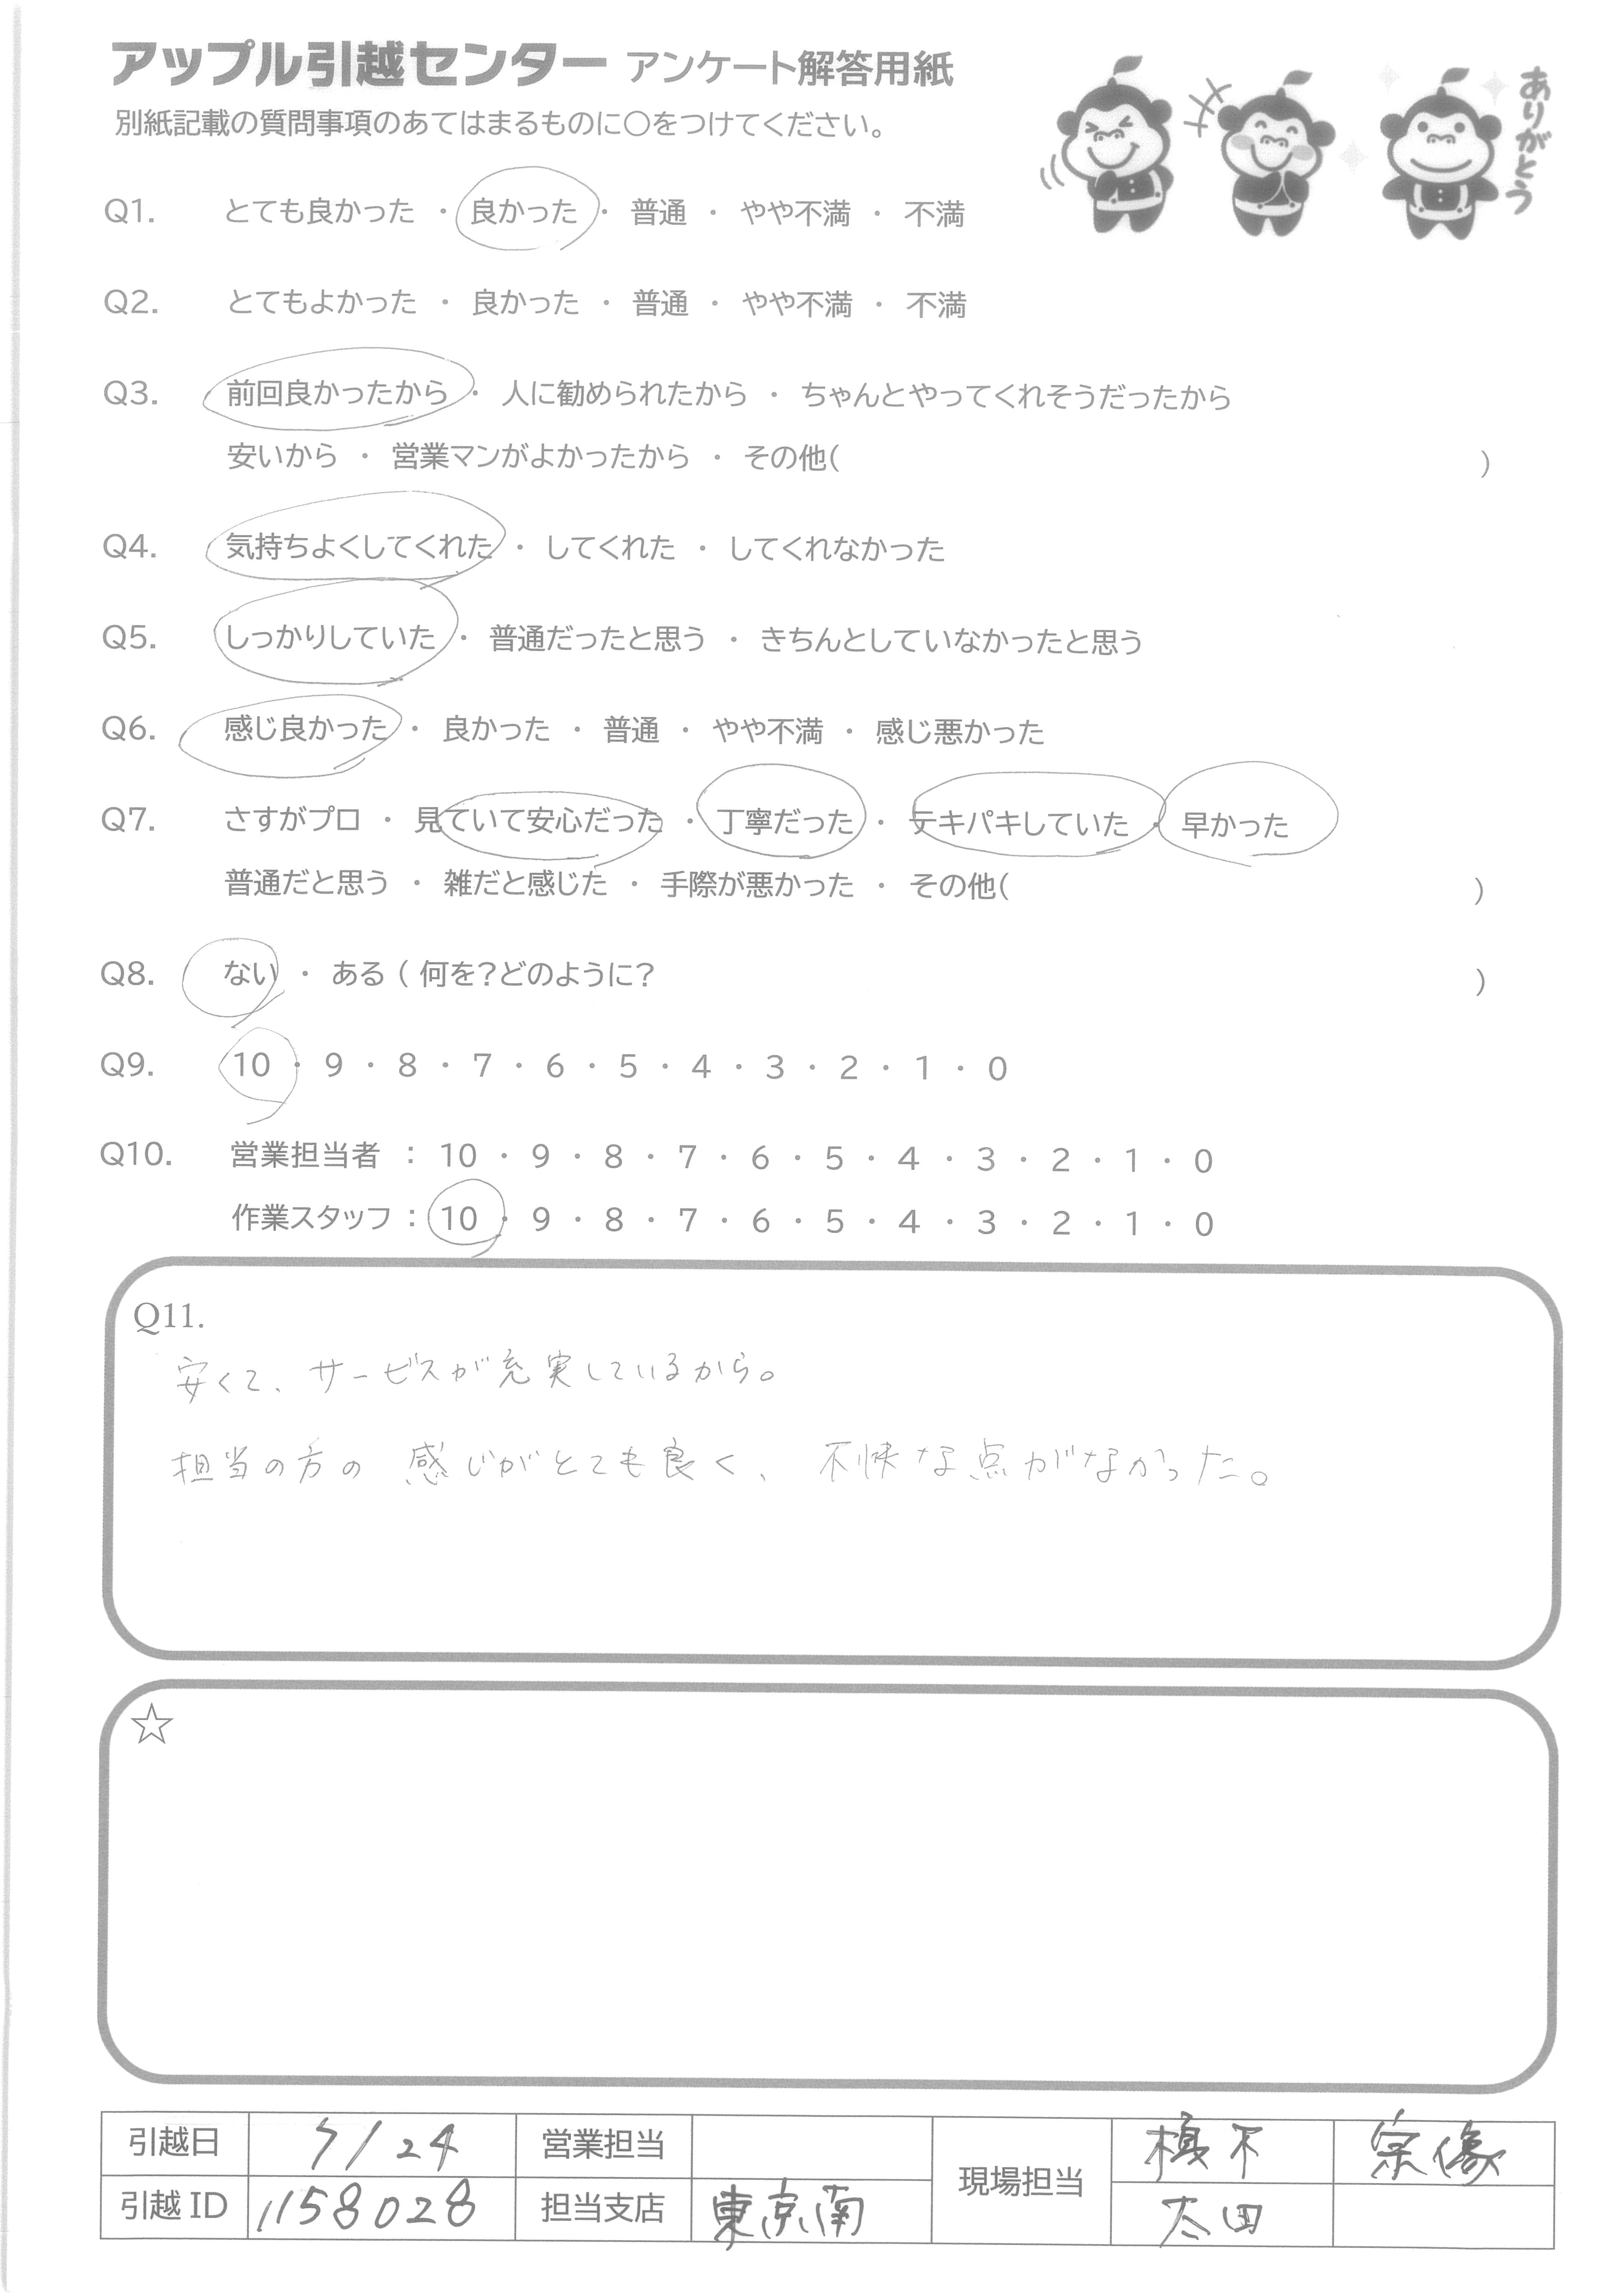 アップル引越センター アンケート解答用紙
別紙記載の質問事項のあてはまるものに〇をつけてください。
ありがとう
Q1. とても良かった ・ 良かった ・ 普通 ・ やや不満 ・ 不満
Q2. とてもよかった ・ 良かった ・ 普通 ・ やや不満 ・ 不満
Q3. 前回良かったから ・ 人に勧められたから ・ ちゃんとやってくれそうだったから
安いから ・ 営業マンがよかったから ・ その他( )
Q4. 気持ちよくしてくれた ・ してくれた ・ してくれなかった
Q5. しっかりしていた ・ 普通だったと思う ・ きちんとしていなかったと思う
Q6. 感じ良かった ・ 良かった ・ 普通 ・ やや不満 ・ 感じ悪かった
Q7. さすがプロ ・ 見ていて安心だった ・ 丁寧だった ・ テキパキしていた ・ 早かった
普通だと思う ・ 雑だと感じた ・ 手際が悪かった ・ その他( )
Q8. ない ・ ある ( 何を?どのように? )
Q9. 10 ・ 9 ・ 8 ・ 7 ・ 6 ・ 5 ・ 4 ・ 3 ・ 2 ・ 1 ・ 0
Q10. 営業担当者 : 10 ・ 9 ・ 8 ・ 7 ・ 6 ・ 5 ・ 4 ・ 3 ・ 2 ・ 1 ・ 0
作業スタッフ : 10 ・ 9 ・ 8 ・ 7 ・ 6 ・ 5 ・ 4 ・ 3 ・ 2 ・ 1 ・ 0
Q11.
安くて、サービスが充実しているから。
担当の方の 感じがとても良く、不快な点がなかった。
☆
引越日 7/24 営業担当 現場担当 宗像
引越 ID 1158028 担当支店 東京南 太田